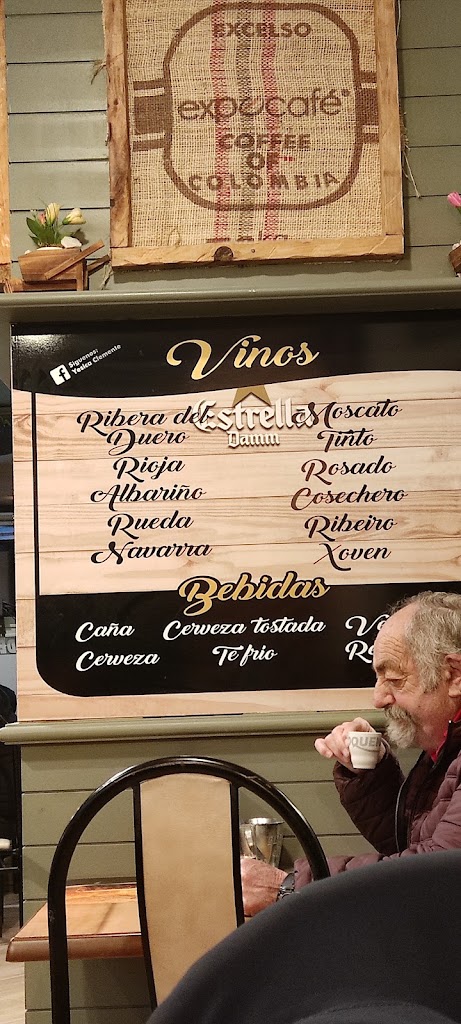 EXCELSO
expocafé®
COFFEE
OF
COLOMBIA
Síguenos:
Yesica Clemente
Vinos
Estrella
Damm
Ribera del
Duero
Rioja
Albariño
Rueda
Navarra
Moscato
Tinto
Rosado
Cosechero
Ribeiro
Xoven
Bebidas
Caña Cerveza tostada
Cerveza Te frio